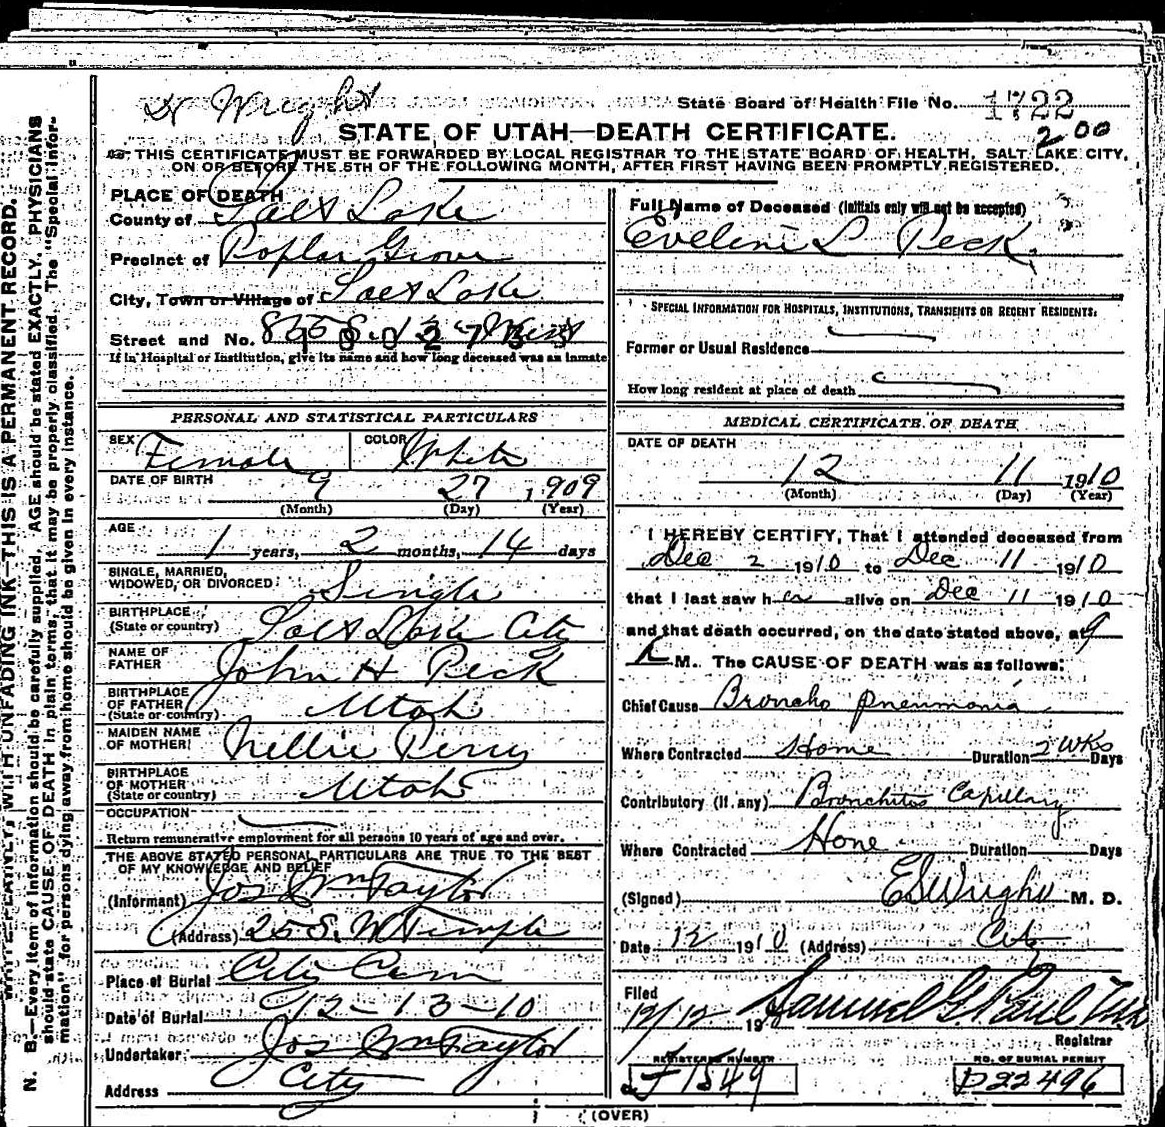 Dr Wright
State Board of Health File No. 1722
STATE OF UTAH—DEATH CERTIFICATE.
200
THIS CERTIFICATE MUST BE FORWARDED BY LOCAL REGISTRAR TO THE STATE BOARD OF HEALTH, SALT LAKE CITY,
ON OR BEFORE THE 5TH OF THE FOLLOWING MONTH, AFTER FIRST HAVING BEEN PROMPTLY REGISTERED.
N. B.—Every item of Information should be carefully supplied. AGE should be stated EXACTLY. PHYSICIANS
should state CAUSE OF DEATH in plain terms, that it may be properly classified. The "Special Infor-
mation" for persons dying away from home should be given in every instance.
WITH UNFADING INK—THIS IS A PERMANENT RECORD.
PLACE OF DEATH
County of Salt Lake
Precinct of Poplar Grove
City, Town or Village of Salt Lake
Street and No. West
If in Hospital or Institution, give its name and how long deceased was an inmate
PERSONAL AND STATISTICAL PARTICULARS
SEX Female COLOR White
DATE OF BIRTH 9 27 1909
(Month) (Day) (Year)
AGE
1 years, 2 months, 14 days
SINGLE, MARRIED,
WIDOWED, OR DIVORCED Single
BIRTHPLACE
(State or country) Salt Lake City
NAME OF
FATHER John H Peck
BIRTHPLACE
OF FATHER
(State or country) Utah
MAIDEN NAME
OF MOTHER Nellie Perry
BIRTHPLACE
OF MOTHER
(State or country) Utah
OCCUPATION
Return remunerative employment for all persons 10 years of age and over.
THE ABOVE STATED PERSONAL PARTICULARS ARE TRUE TO THE BEST
OF MY KNOWLEDGE AND BELIEF
(Informant) Jos Wm Taylor
(Address) 25 S. W Temple
Place of Burial City Cem
Date of Burial 12-13-10
Undertaker Jos Wm Taylor
Address City
Full Name of Deceased (Initials only will not be accepted)
Eveline L Peck.
SPECIAL INFORMATION FOR HOSPITALS, INSTITUTIONS, TRANSIENTS OR RECENT RESIDENTS:
Former or Usual Residence
How long resident at place of death
MEDICAL CERTIFICATE OF DEATH
DATE OF DEATH
12 11 1910
(Month) (Day) (Year)
I HEREBY CERTIFY, That I attended deceased from
Dec 2 1910 to Dec 11 1910
that I last saw her alive on Dec 11 1910
and that death occurred, on the date stated above, at 9
M. The CAUSE OF DEATH was as follows:
Chief Cause Broncho pneumonia
Where Contracted Home Duration 2 wks Days
Contributory (If any) Bronchitis Capillary
Where Contracted Home Duration Days
(Signed) E S Wright M. D.
Date 12 1910 (Address) City
Filed
12/12 19 Samuel G. Paul
Registrar
REGISTERED NUMBER
1549
NO. OF BURIAL PERMIT
D22496
(OVER)